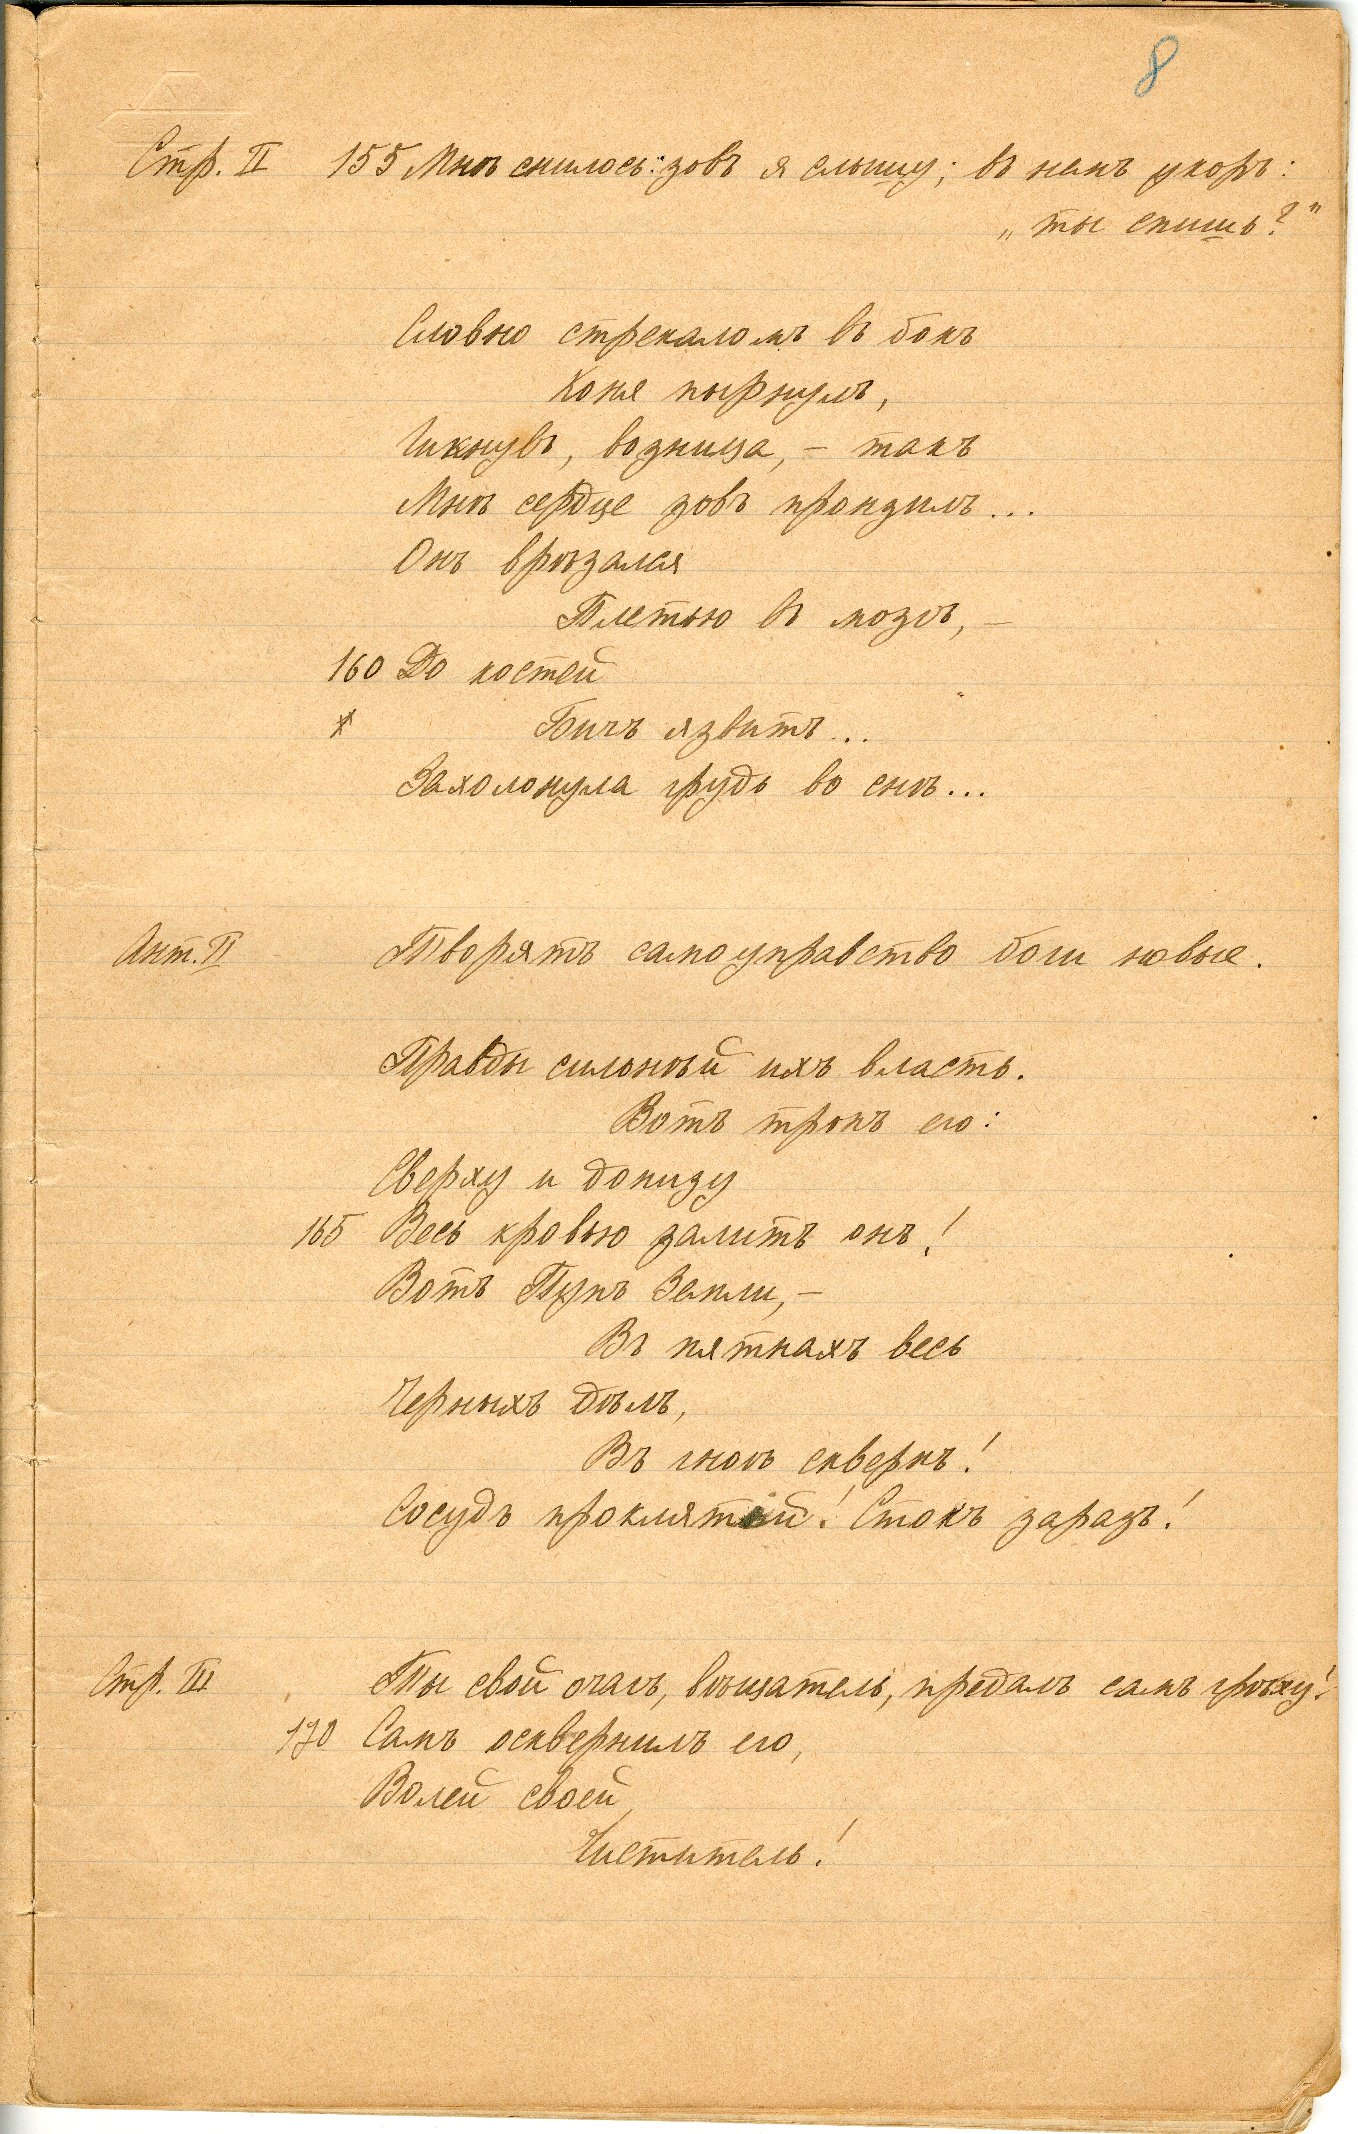 8
Стр. II 155 Мнѣ снилось: зовъ я слышу; въ немъ укоръ:
„ты спишь?"
Словно стрекаломъ въ бокъ
Коня пырнулъ,
Гикнувъ, возница, – такъ
Мнѣ сердце зовъ пронзилъ...
Онъ врѣзался
Плетью въ мозгъ, –
160 До костей
Бичъ язвитъ...
Захолонула грудь во снѣ...
Ант. II Творятъ самоуправство боги новые.
Правды сильнѣй ихъ власть.
Вотъ тронъ его:
Сверху и донизу
165 Весь кровью залитъ онъ!
Вотъ Пупъ Земли, –
Въ пятнахъ весь
Черныхъ дѣлъ,
Въ гноѣ сквернъ!
Сосудъ проклятій! Стокъ заразъ!
Стр. III Ты свой очагъ, вѣщатель, предалъ самъ грѣху!
170 Самъ осквернилъ его,
Волей своей,
Чиститель!